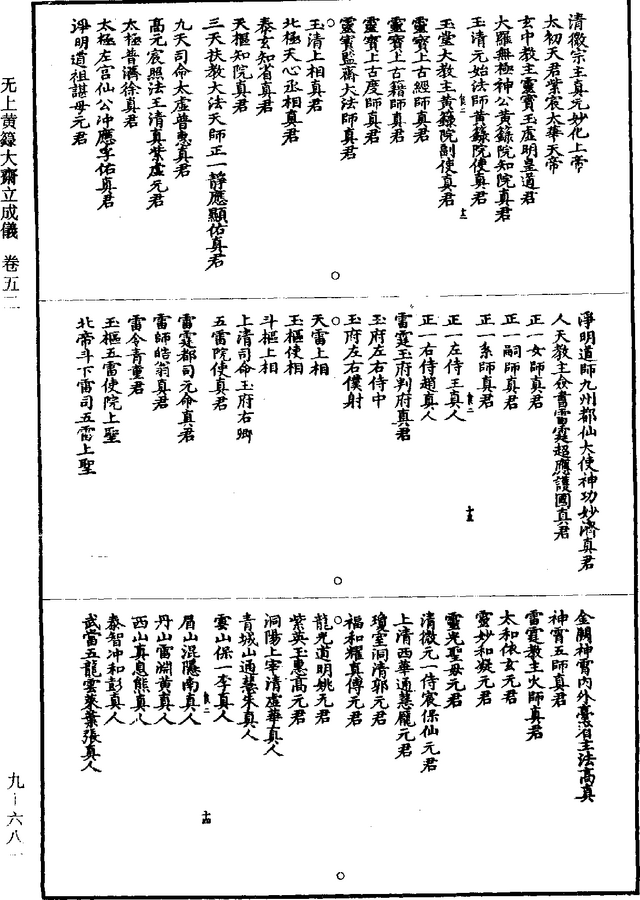 无上黄籙大齋立成儀 卷五二
九—六八一
清微宗主真元妙化上帝
太初天君紫宸太華天帝
玄中教主靈寶玉虛明皇道君
大羅無極神公黄籙院知院真君
玉清元始法師黄籙院使真君
玉堂大教主黄籙院副使真君
靈寶上古經師真君
靈寶上古籍師真君
靈寶上古度師真君
靈寶監齋大法師真君
玉清上相真君
北極天心丞相真君
泰玄知省真君
天樞知院真君
三天扶教大法天師正一靜應顯佑真君
九天司命太虛普惠真君
高元宸照法王清真紫虛元君
太極普濟徐真君
太極左宫仙公沖應孚佑真君
淨明道祖諶母元君
淨明道師九州都仙大使神功妙濟真君
人天教主僉書雷霆超應護國真君
正一女師真君
正一嗣師真君
正一系師真君
正一左侍王真人
正一右侍趙真人
雷霆玉府判府真君
玉府左右侍中
玉府左右僕射
天雷上相
玉樞使相
斗樞上相
上清司命玉府右卿
五雷院使真君
雷霆都司元命真君
雷師皓翁真君
雷令青童君
玉樞五雷使院上聖
北帝斗下雷司五雷上聖
金闕神霄内外臺省主法高真
神霄五師真君
雷霆教主火師真君
太和依玄元君
靈妙和凝元君
靈光聖母元君
清微元一侍宸保仙元君
上清西華通慧龎元君
瓊室洞清郭元君
福和耀真傅元君
龍光道明姚元君
紫英玉惠高元君
洞陽上宰清虛華真人
青城山通慧朱真人
雲山保一李真人
眉山混隱南真人
丹山雷淵黄真人
西山真息熊真人
泰智沖和彭真人
武當五龍雲萊葉張真人